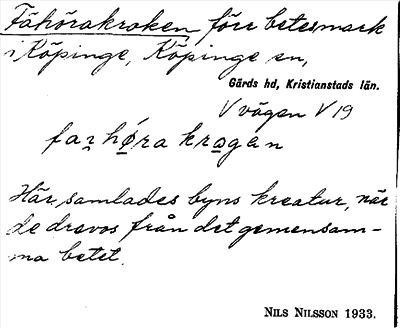 Fähörakroken förr betesmark
i Köpinge, Köpinge sn,
Gärds hd, Kristianstads län.
V vägen V 19
farhøra krogan
Här samlades byns kreatur, när
de drevos från det gemensam-
ma betet.
NILS NILSSON 1933.